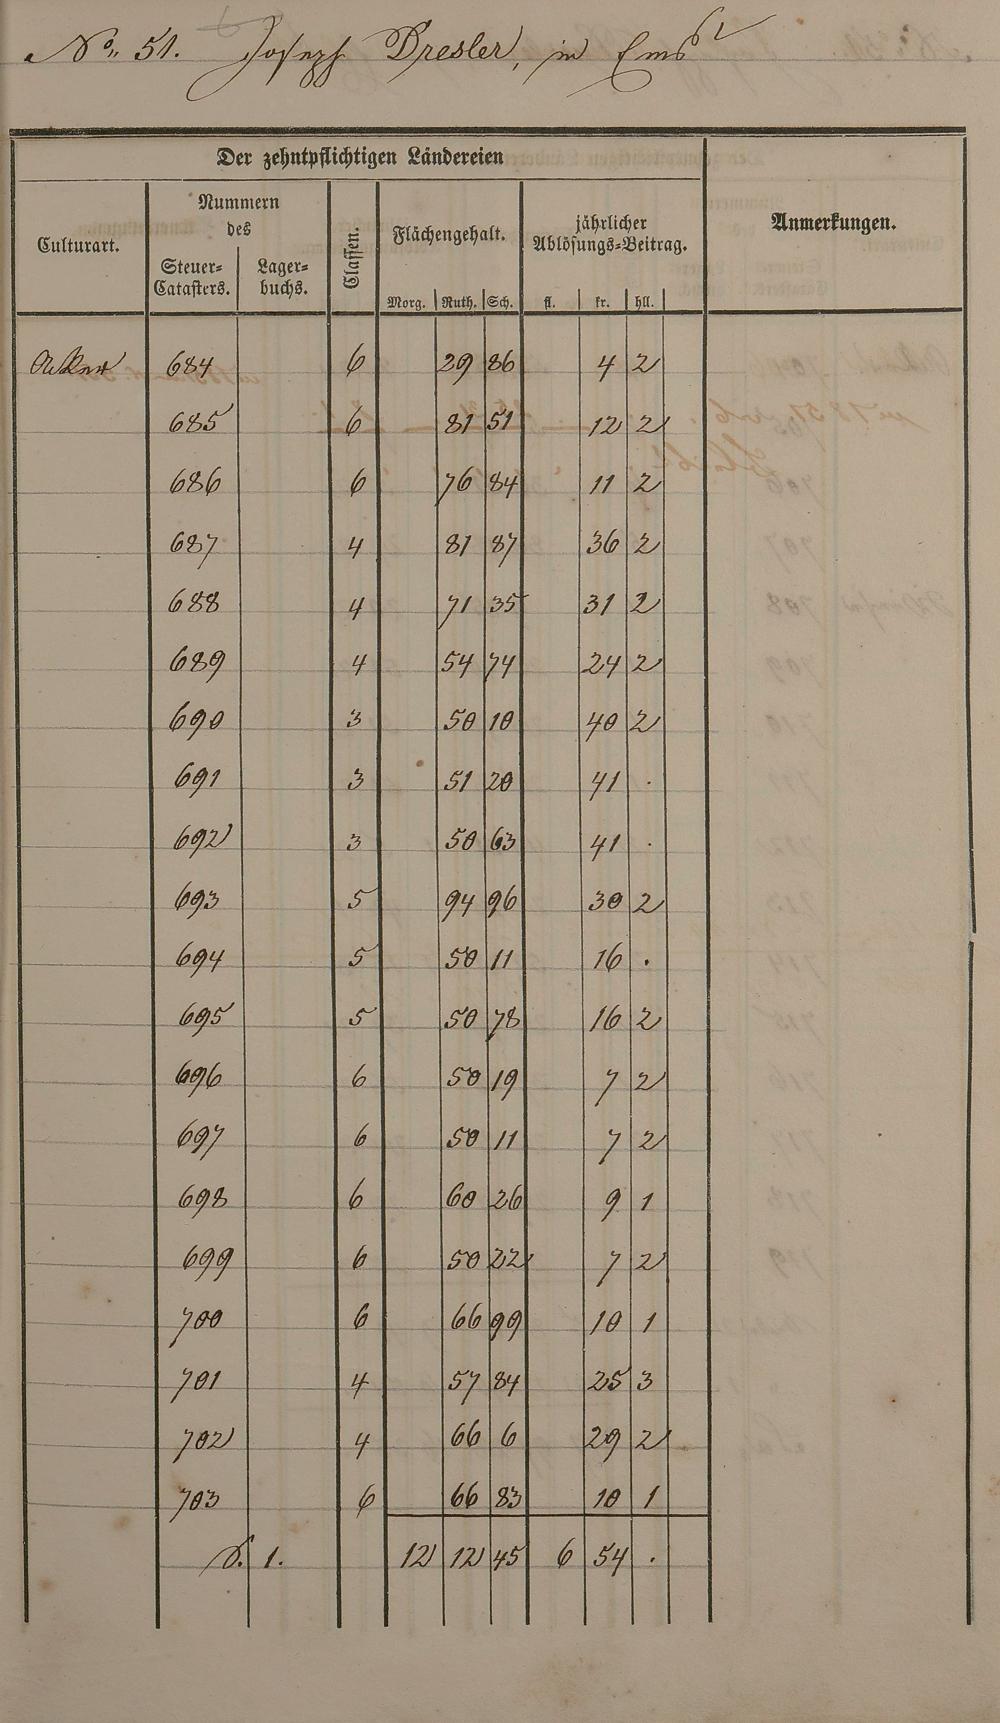 No. 51. Joseph Dresler, in Ems
Der zehntpflichtigen Ländereien
Culturart.
Nummern
des
Steuer-
Catasters.
Lager-
buchs.
Classen.
Flächengehalt.
Morg. Ruth. Sch.
jährlicher
Ablösungs-Beitrag.
fl. kr. hll.
Anmerkungen.
Acker 684 6 29 86 4 2
685 6 81 51 12 2
686 6 76 84 11 2
687 4 81 87 36 2
688 4 71 35 31 2
689 4 54 74 24 2
690 3 50 10 40 2
691 3 51 20 41 .
692 3 50 63 41 .
693 5 94 96 30 2
694 5 50 11 16 .
695 5 50 78 16 2
696 6 50 19 7 2
697 6 50 11 7 2
698 6 60 26 9 1
699 6 50 22 7 2
700 6 66 99 10 1
701 4 57 84 25 3
702 4 66 6 29 2
703 6 66 83 10 1
S. 1. 12 12 45 6 54 .